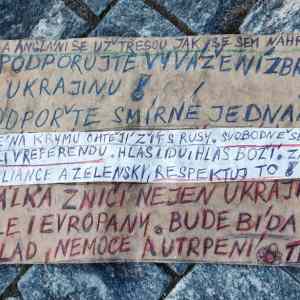 A ANGLIČANI SE UŽ TŘESOU JAK SE SEM NAHR
PODPORUJTE VYVÁŽENÍ ZBR
UKRAJINU!
ODPOR'TE SMÍRNE JEDNA
É NA KRYMU CHTEJÍ ŽÍT S RUSY. SVOBODNE S
LI V REFERENDU. HLAS LIDU I HLAS BOŽÍ. Z
LIANCE A ZELENSKI, RESPEKTUJ TO!
ÁLKA ZNIČÍ NEJEN UKRAJ
LE I EVROPANY. BUDE BÍDA
LAD, NEMOCE A UTRPENÍ T